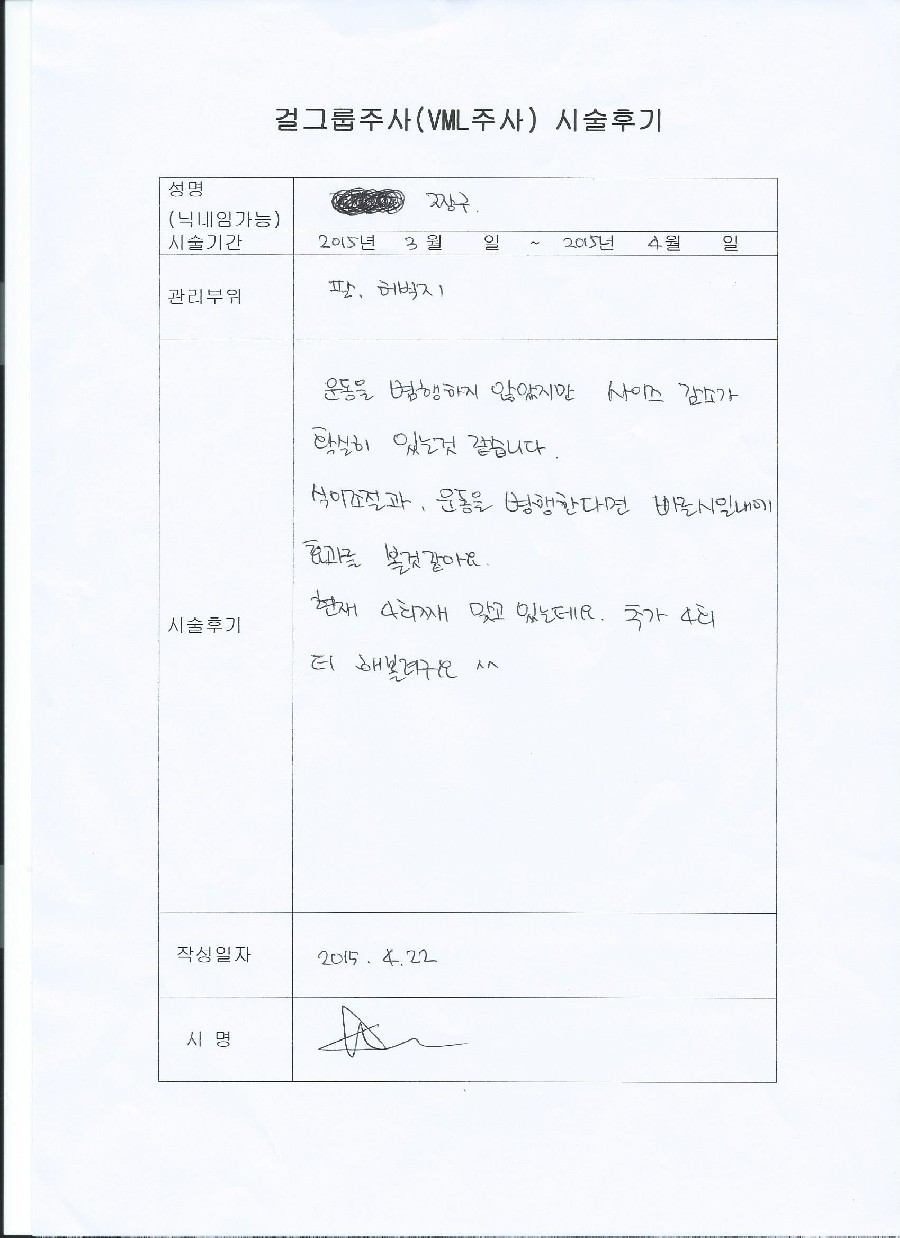 걸그룹주사(VML주사) 시술후기
성명
(닉네임가능)
짱구.
시술기간
2015년 3월 일 ~ 2015년 4월 일
관리부위
팔, 허벅지
시술후기
운동을 병행하지 않았지만 사이즈 감소가
확실히 있는것 같습니다.
식이조절과, 운동을 병행한다면 빠른시일내에
효과를 볼것같아요.
현재 4회째 맞고 있는데요. 추가 4회
더 해볼려구요 ^^
작성일자
2015. 4.22
서 명